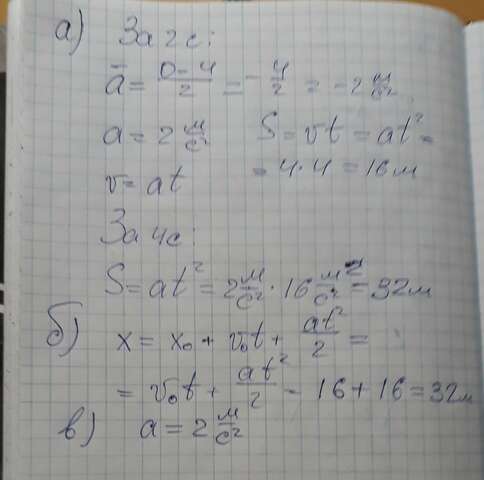 а) За 2с:
ā = (0-4)/2 = -4/2 = -2 м/с²
a = 2 м/с² S = vt = at² =
v = at = 4·4 = 16м
За 4с:
S = at² = 2 м/с² · 16 м²/с² = 32м
б) x = x₀ + v₀t + at²/2 =
= v₀t + at²/2 - 16 + 16 = 32м
в) a = 2 м/с²